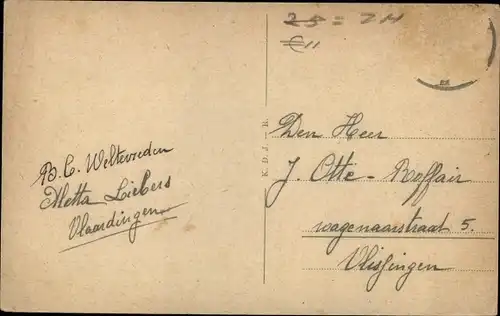 25 = ZH
€11
K. D. J. - B.
B. C. Weltevreden
Metta Liebers
Vlaardingen
Den Heer
J. Otte - Roffair
wagenaarstraat 5.
Vlissingen